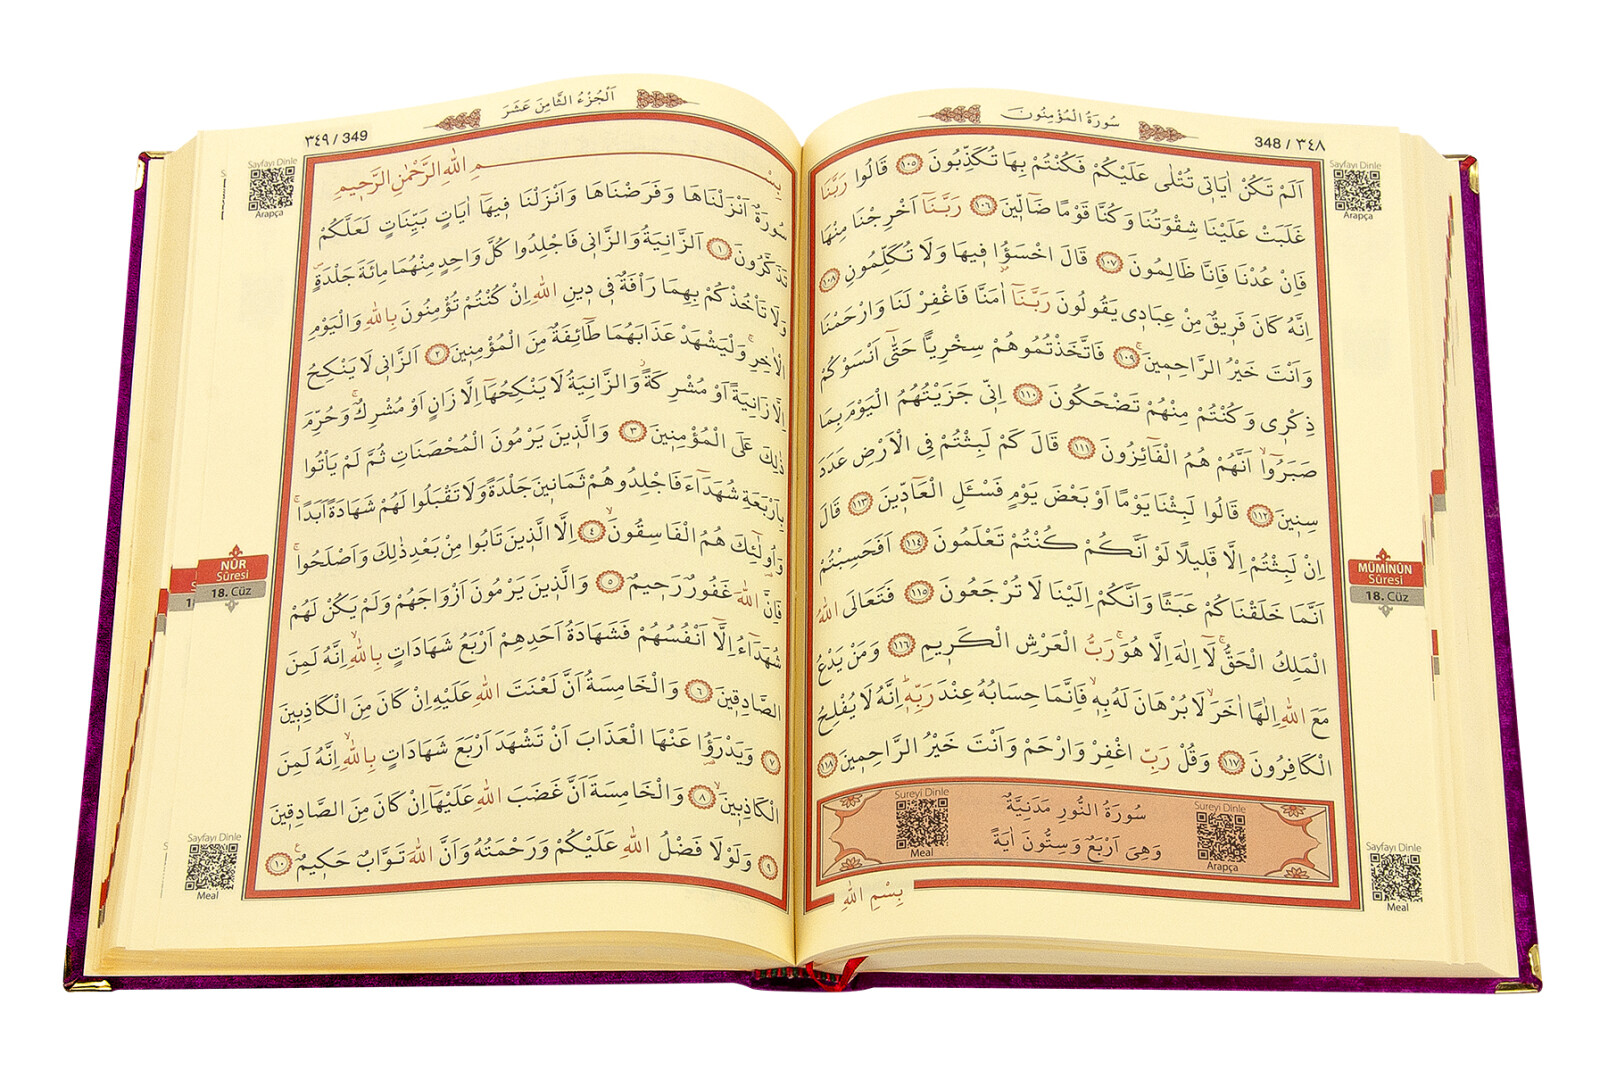 سُورَةُ الْمُؤْمِنُونَ
348 / ٣٤٨
Sayfayı Dinle
Arapça
اَلَمْ تَكُنْ اٰيَاتٖي تُتْلٰى عَلَيْكُمْ فَكُنْتُمْ بِهَا تُكَذِّبُونَ ﴿١٠٥﴾ قَالُوا رَبَّنَا
غَلَبَتْ عَلَيْنَا شِقْوَتُنَا وَكُنَّا قَوْمًا ضَٓالّٖينَ ﴿١٠٦﴾ رَبَّنَٓا اَخْرِجْنَا مِنْهَا
فَاِنْ عُدْنَا فَاِنَّا ظَالِمُونَ ﴿١٠٧﴾ قَالَ اخْسَؤُ۫ا فٖيهَا وَلَا تُكَلِّمُونِ ﴿١٠٨﴾
اِنَّهُ كَانَ فَرٖيقٌ مِنْ عِبَادٖي يَقُولُونَ رَبَّنَٓا اٰمَنَّا فَاغْفِرْ لَنَا وَارْحَمْنَا
وَاَنْتَ خَيْرُ الرَّاحِمٖينَۚ ﴿١٠٩﴾ فَاتَّخَذْتُمُوهُمْ سِخْرِيًّا حَتّٰٓى اَنْسَوْكُمْ
ذِكْرٖي وَكُنْتُمْ مِنْهُمْ تَضْحَكُونَ ﴿١١٠﴾ اِنّٖي جَزَيْتُهُمُ الْيَوْمَ بِمَا
صَبَرُٓواۙ اَنَّهُمْ هُمُ الْفَٓائِزُونَ ﴿١١١﴾ قَالَ كَمْ لَبِثْتُمْ فِي الْاَرْضِ عَدَدَ
سِنٖينَ ﴿١١٢﴾ قَالُوا لَبِثْنَا يَوْمًا اَوْ بَعْضَ يَوْمٍ فَسْـَٔلِ الْعَٓادّٖينَ ﴿١١٣﴾ قَالَ
اِنْ لَبِثْتُمْ اِلَّا قَلٖيلًا لَوْ اَنَّكُمْ كُنْتُمْ تَعْلَمُونَ ﴿١١٤﴾ اَفَحَسِبْتُمْ
اَنَّمَا خَلَقْنَاكُمْ عَبَثًا وَاَنَّكُمْ اِلَيْنَا لَا تُرْجَعُونَ ﴿١١٥﴾ فَتَعَالَى اللّٰهُ
الْمَلِكُ الْحَقُّۚ لَٓا اِلٰهَ اِلَّا هُوَۚ رَبُّ الْعَرْشِ الْكَرٖيمِ ﴿١١٦﴾ وَمَنْ يَدْعُ
مَعَ اللّٰهِ اِلٰهًا اٰخَرَۙ لَا بُرْهَانَ لَهُ بِهٖۙ فَاِنَّمَا حِسَابُهُ عِنْدَ رَبِّهٖؕ اِنَّهُ لَا يُفْلِحُ
الْكَافِرُونَ ﴿١١٧﴾ وَقُلْ رَبِّ اغْفِرْ وَارْحَمْ وَاَنْتَ خَيْرُ الرَّاحِمٖينَ ﴿١١٨﴾
MÜMİNÛN
Sûresi
18. Cüz
Sureyi Dinle
Arapça
سُورَةُ النُّورِ مَدَنِيَّةٌ
وَهِيَ اَرْبَعٌ وَسِتُّونَ اٰيَةً
Sureyi Dinle
Meal
Sayfayı Dinle
Meal
بِسْمِ اللّٰهِ
اَلْجُزْءُ الثَّامِنَ عَشَرَ
٣٤٩ / 349
Sayfayı Dinle
Arapça
بِسْمِ اللّٰهِ الرَّحْمٰنِ الرَّحٖيمِ
سُورَةٌ اَنْزَلْنَاهَا وَفَرَضْنَاهَا وَاَنْزَلْنَا فٖيهَٓا اٰيَاتٍ بَيِّنَاتٍ لَعَلَّكُمْ
تَذَكَّرُونَ ﴿١﴾ اَلزَّانِيَةُ وَالزَّانٖي فَاجْلِدُوا كُلَّ وَاحِدٍ مِنْهُمَا مِائَةَ جَلْدَةٍࣕ
وَلَا تَأْخُذْكُمْ بِهِمَا رَأْفَةٌ فٖي دٖينِ اللّٰهِ اِنْ كُنْتُمْ تُؤْمِنُونَ بِاللّٰهِ وَالْيَوْمِ
الْاٰخِرِۚ وَلْيَشْهَدْ عَذَابَهُمَا طَٓائِفَةٌ مِنَ الْمُؤْمِنٖينَ ﴿٢﴾ اَلزَّانٖي لَا يَنْكِحُ
اِلَّا زَانِيَةً اَوْ مُشْرِكَةًؗ وَالزَّانِيَةُ لَا يَنْكِحُهَٓا اِلَّا زَانٍ اَوْ مُشْرِكٌۚ وَحُرِّمَ
ذٰلِكَ عَلَى الْمُؤْمِنٖينَ ﴿٣﴾ وَالَّذٖينَ يَرْمُونَ الْمُحْصَنَاتِ ثُمَّ لَمْ يَأْتُوا
بِاَرْبَعَةِ شُهَدَٓاءَ فَاجْلِدُوهُمْ ثَمَانٖينَ جَلْدَةً وَلَا تَقْبَلُوا لَهُمْ شَهَادَةً اَبَدًاۚ
وَاُو۬لٰٓئِكَ هُمُ الْفَاسِقُونَۙ ﴿٤﴾ اِلَّا الَّذٖينَ تَابُوا مِنْ بَعْدِ ذٰلِكَ وَاَصْلَحُواۚ
فَاِنَّ اللّٰهَ غَفُورٌ رَحٖيمٌ ﴿٥﴾ وَالَّذٖينَ يَرْمُونَ اَزْوَاجَهُمْ وَلَمْ يَكُنْ لَهُمْ
شُهَدَٓاءُ اِلَّٓا اَنْفُسُهُمْ فَشَهَادَةُ اَحَدِهِمْ اَرْبَعُ شَهَادَاتٍ بِاللّٰهِۙ اِنَّهُ لَمِنَ
الصَّادِقٖينَ ﴿٦﴾ وَالْخَامِسَةُ اَنَّ لَعْنَتَ اللّٰهِ عَلَيْهِ اِنْ كَانَ مِنَ الْكَاذِبٖينَ
﴿٧﴾ وَيَدْرَؤُ۬ا عَنْهَا الْعَذَابَ اَنْ تَشْهَدَ اَرْبَعَ شَهَادَاتٍ بِاللّٰهِۙ اِنَّهُ لَمِنَ
الْكَاذِبٖينَۙ ﴿٨﴾ وَالْخَامِسَةَ اَنَّ غَضَبَ اللّٰهِ عَلَيْهَٓا اِنْ كَانَ مِنَ الصَّادِقٖينَ
﴿٩﴾ وَلَوْلَا فَضْلُ اللّٰهِ عَلَيْكُمْ وَرَحْمَتُهُ وَاَنَّ اللّٰهَ تَوَّابٌ حَكٖيمٌۚ ﴿١٠﴾
NÛR
Sûresi
18. Cüz
Sayfayı Dinle
Meal